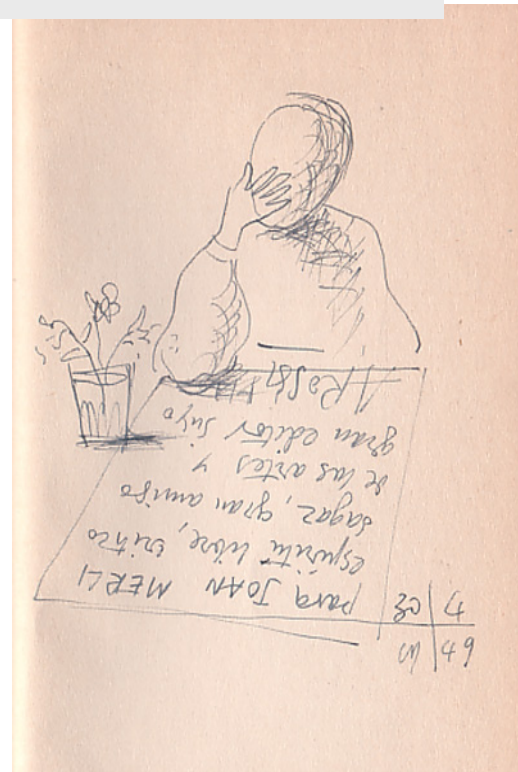 para JOAN MERLI
espíritu libre, crítico
sagaz, gran amigo
de las artes y
gran editor suyo
A ROSSI